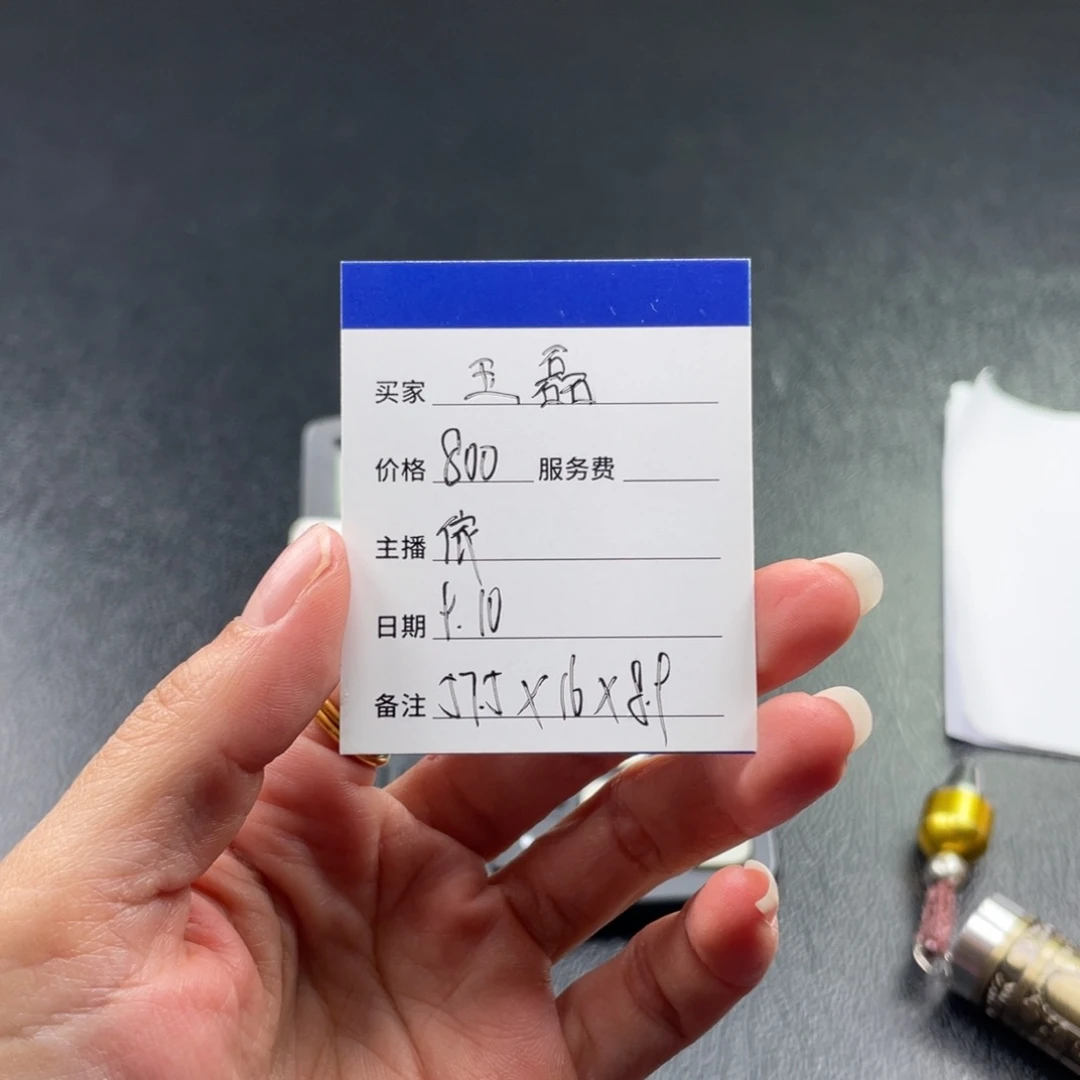 买家 王磊
价格 800 服务费
主播 依
日期 4.10
备注 57.5×16×8.9